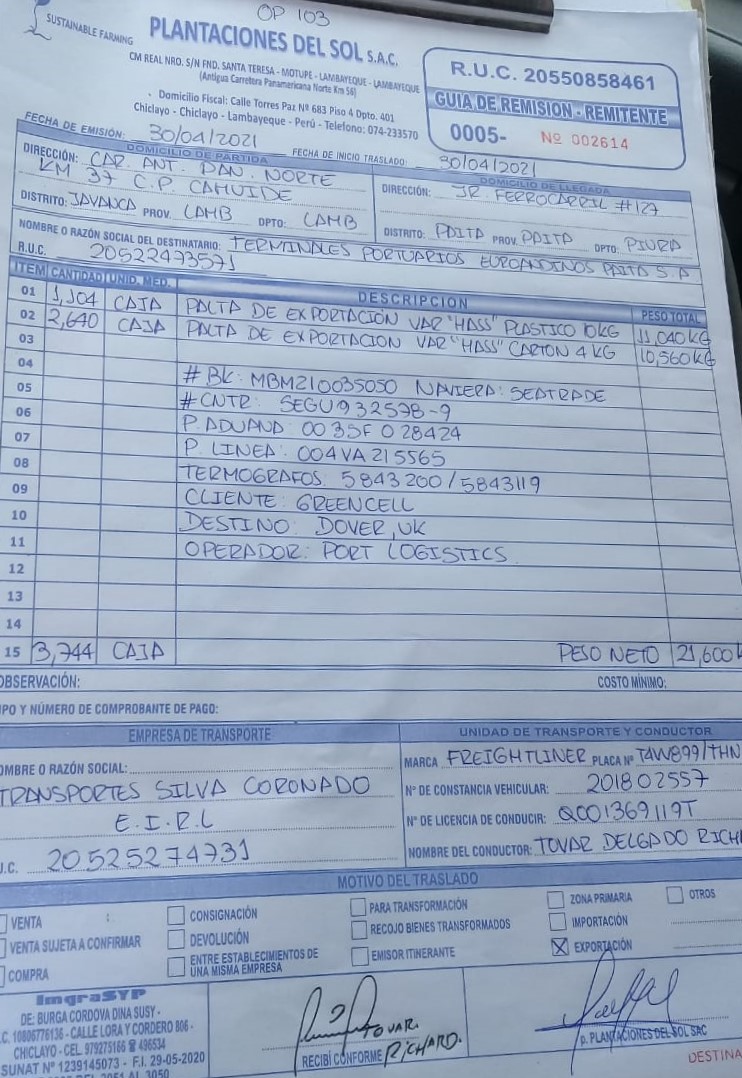 OP 103
SUSTAINABLE FARMING
PLANTACIONES DEL SOL S.A.C.
CM REAL NRO. S/N FND. SANTA TERESA - MOTUPE - LAMBAYEQUE - LAMBAYEQUE
(Antigua Carretera Panamericana Norte Km 56)
Domicilio Fiscal: Calle Torres Paz Nº 683 Piso 4 Dpto. 401
Chiclayo - Chiclayo - Lambayeque - Perú - Telefono: 074-233570
R.U.C. 20550858461
GUIA DE REMISION - REMITENTE
0005- Nº 002614
FECHA DE EMISIÓN: 30/04/2021 FECHA DE INICIO TRASLADO: 30/04/2021
DOMICILIO DE PARTIDA
DIRECCIÓN: CAR. ANT. PAN. NORTE
KM 37 C.P. CAHUIDE
DISTRITO: JAYANCA PROV. LAMB DPTO: LAMB
DOMICILIO DE LLEGADA
DIRECCIÓN: JR. FERROCARRIL #127
DISTRITO: PAITA PROV. PAITA DPTO: PIURA
NOMBRE O RAZÓN SOCIAL DEL DESTINATARIO: TERMINALES PORTUARIOS EUROANDINOS PAITA S.A
R.U.C. 20522473571
ITEM CANTIDAD UNID. MED. DESCRIPCION PESO TOTAL
01 1,104 CAJA PALTA DE EXPORTACIÓN VAR "HASS" PLASTICO 10KG 11,040KG
02 2,640 CAJA PALTA DE EXPORTACION VAR "HASS" CARTON 4 KG 10,560KG
03
04 # BK: MBM210035050 NAVIERA: SEATRADE
05 # CNTR: SEGU932578-9
06 P. ADUANA: 0035F028424
07 P. LINEA: 004VA215565
08 TERMOGRAFOS: 5843200/5843119
09 CLIENTE: GREENCELL
10 DESTINO: DOVER, UK
11 OPERADOR: PORT LOGISTICS
12
13
14
15 3,744 CAJA PESO NETO 21,600
OBSERVACIÓN: COSTO MÍNIMO:
IPO Y NÚMERO DE COMPROBANTE DE PAGO:
EMPRESA DE TRANSPORTE
OMBRE O RAZÓN SOCIAL:
TRANSPORTES SILVA CORONADO
E.I.R.L
U.C. 20525274731
UNIDAD DE TRANSPORTE Y CONDUCTOR
MARCA FREIGHTLINER PLACA Nº T4W899/THN
Nº DE CONSTANCIA VEHICULAR: 201802557
Nº DE LICENCIA DE CONDUCIR: Q001369119T
NOMBRE DEL CONDUCTOR: TOVAR DELGADO RICH
MOTIVO DEL TRASLADO
VENTA
VENTA SUJETA A CONFIRMAR
COMPRA
CONSIGNACIÓN
DEVOLUCIÓN
ENTRE ESTABLECIMIENTOS DE
UNA MISMA EMPRESA
PARA TRANSFORMACIÓN
RECOJO BIENES TRANSFORMADOS
EMISOR ITINERANTE
ZONA PRIMARIA
IMPORTACIÓN
X EXPORTACIÓN
OTROS
ImgraSYP
DE: BURGA CORDOVA DINA SUSY -
.C. 10806776136 - CALLE LORA Y CORDERO 806 -
CHICLAYO - CEL. 979275166 ☎ 496534
SUNAT Nº 1239145073 - F.I. 29-05-2020
2051 AL 3050
TOVAR
RICHARD.
RECIBÍ CONFORME
p. PLANTACIONES DEL SOL SAC
DESTINA